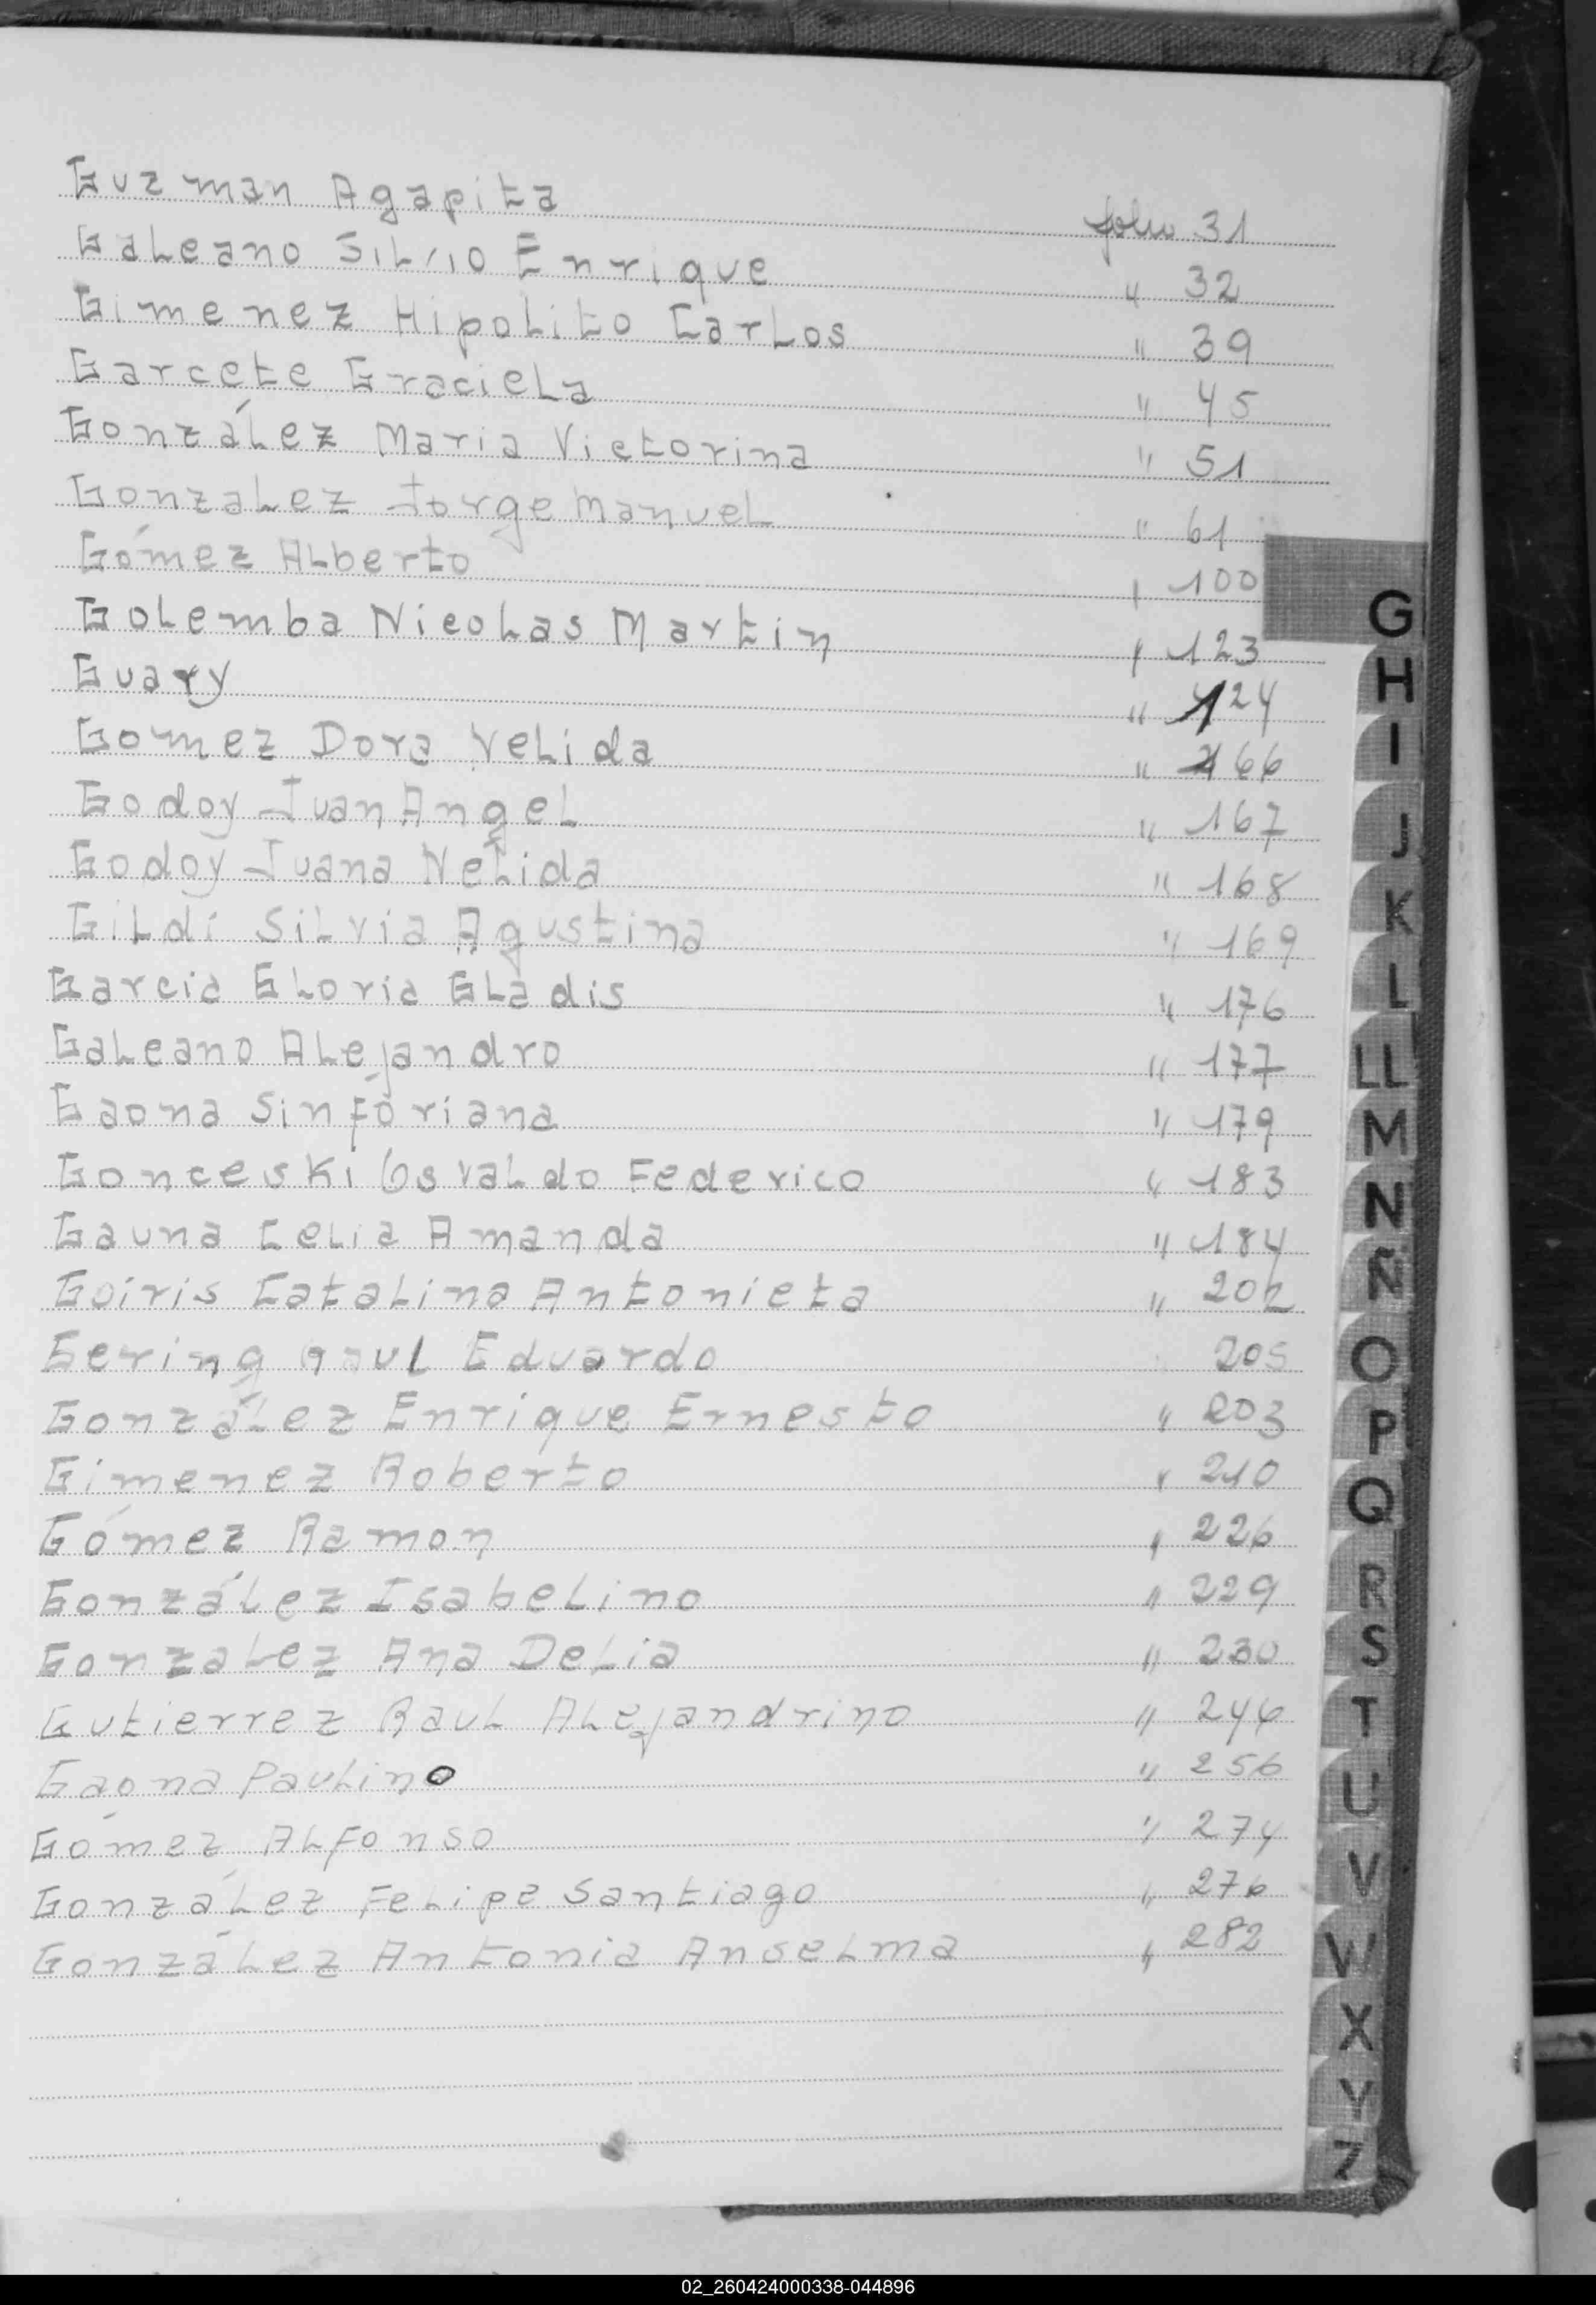 Guzman Agapita folio 31
Galeano Silvio Enrique " 32
Gimenez Hipolito Carlos " 39
Garcete Graciela " 45
González Maria Victorina " 51
Gonzalez Jorge Manuel " 61
Gómez Alberto " 100
Golemba Nicolas Martin " 123
Guary " 124
Gomez Dora Velida " 166
Godoy Juan Angel " 167
Godoy Juana Nélida " 168
Gildi Silvia Agustina " 169
Garcia Gloria Gladis " 176
Galeano Alejandro " 177
Gaona Sinforiana " 179
Gonceski Osvaldo Federico " 183
Gauna Celia Amanda " 184
Goiris Catalina Antonieta " 202
Gering Raul Eduardo 205
González Enrique Ernesto " 203
Gimenez Roberto " 210
Gómez Ramon " 226
González Isabelino " 229
Gonzalez Ana Delia " 230
Gutierrez Raul Alejandrino " 246
Gaona Paulino " 256
Gómez Alfonso " 274
González Felipe Santiago " 276
González Antonia Anselma " 282
G
H
I
J
K
L
LL
M
N
Ñ
O
P
Q
R
S
T
U
V
W
X
Y
Z
02_260424000338-044896